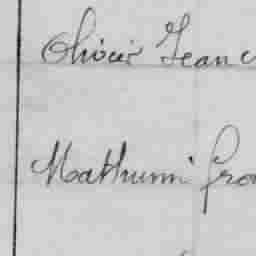 Olivier Jean
Mathurin